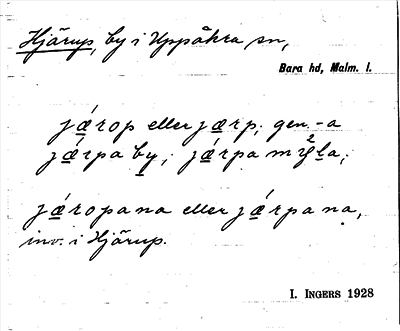 Hjärup, by i Uppåkra sn,
Bara hd, Malm. l.
jǽrop eller jǽrp; gen. -a
jǽrpa by; jǽrpa
jǽropana eller jǽrpana,
inv. i Hjärup.
I. INGERS 1928